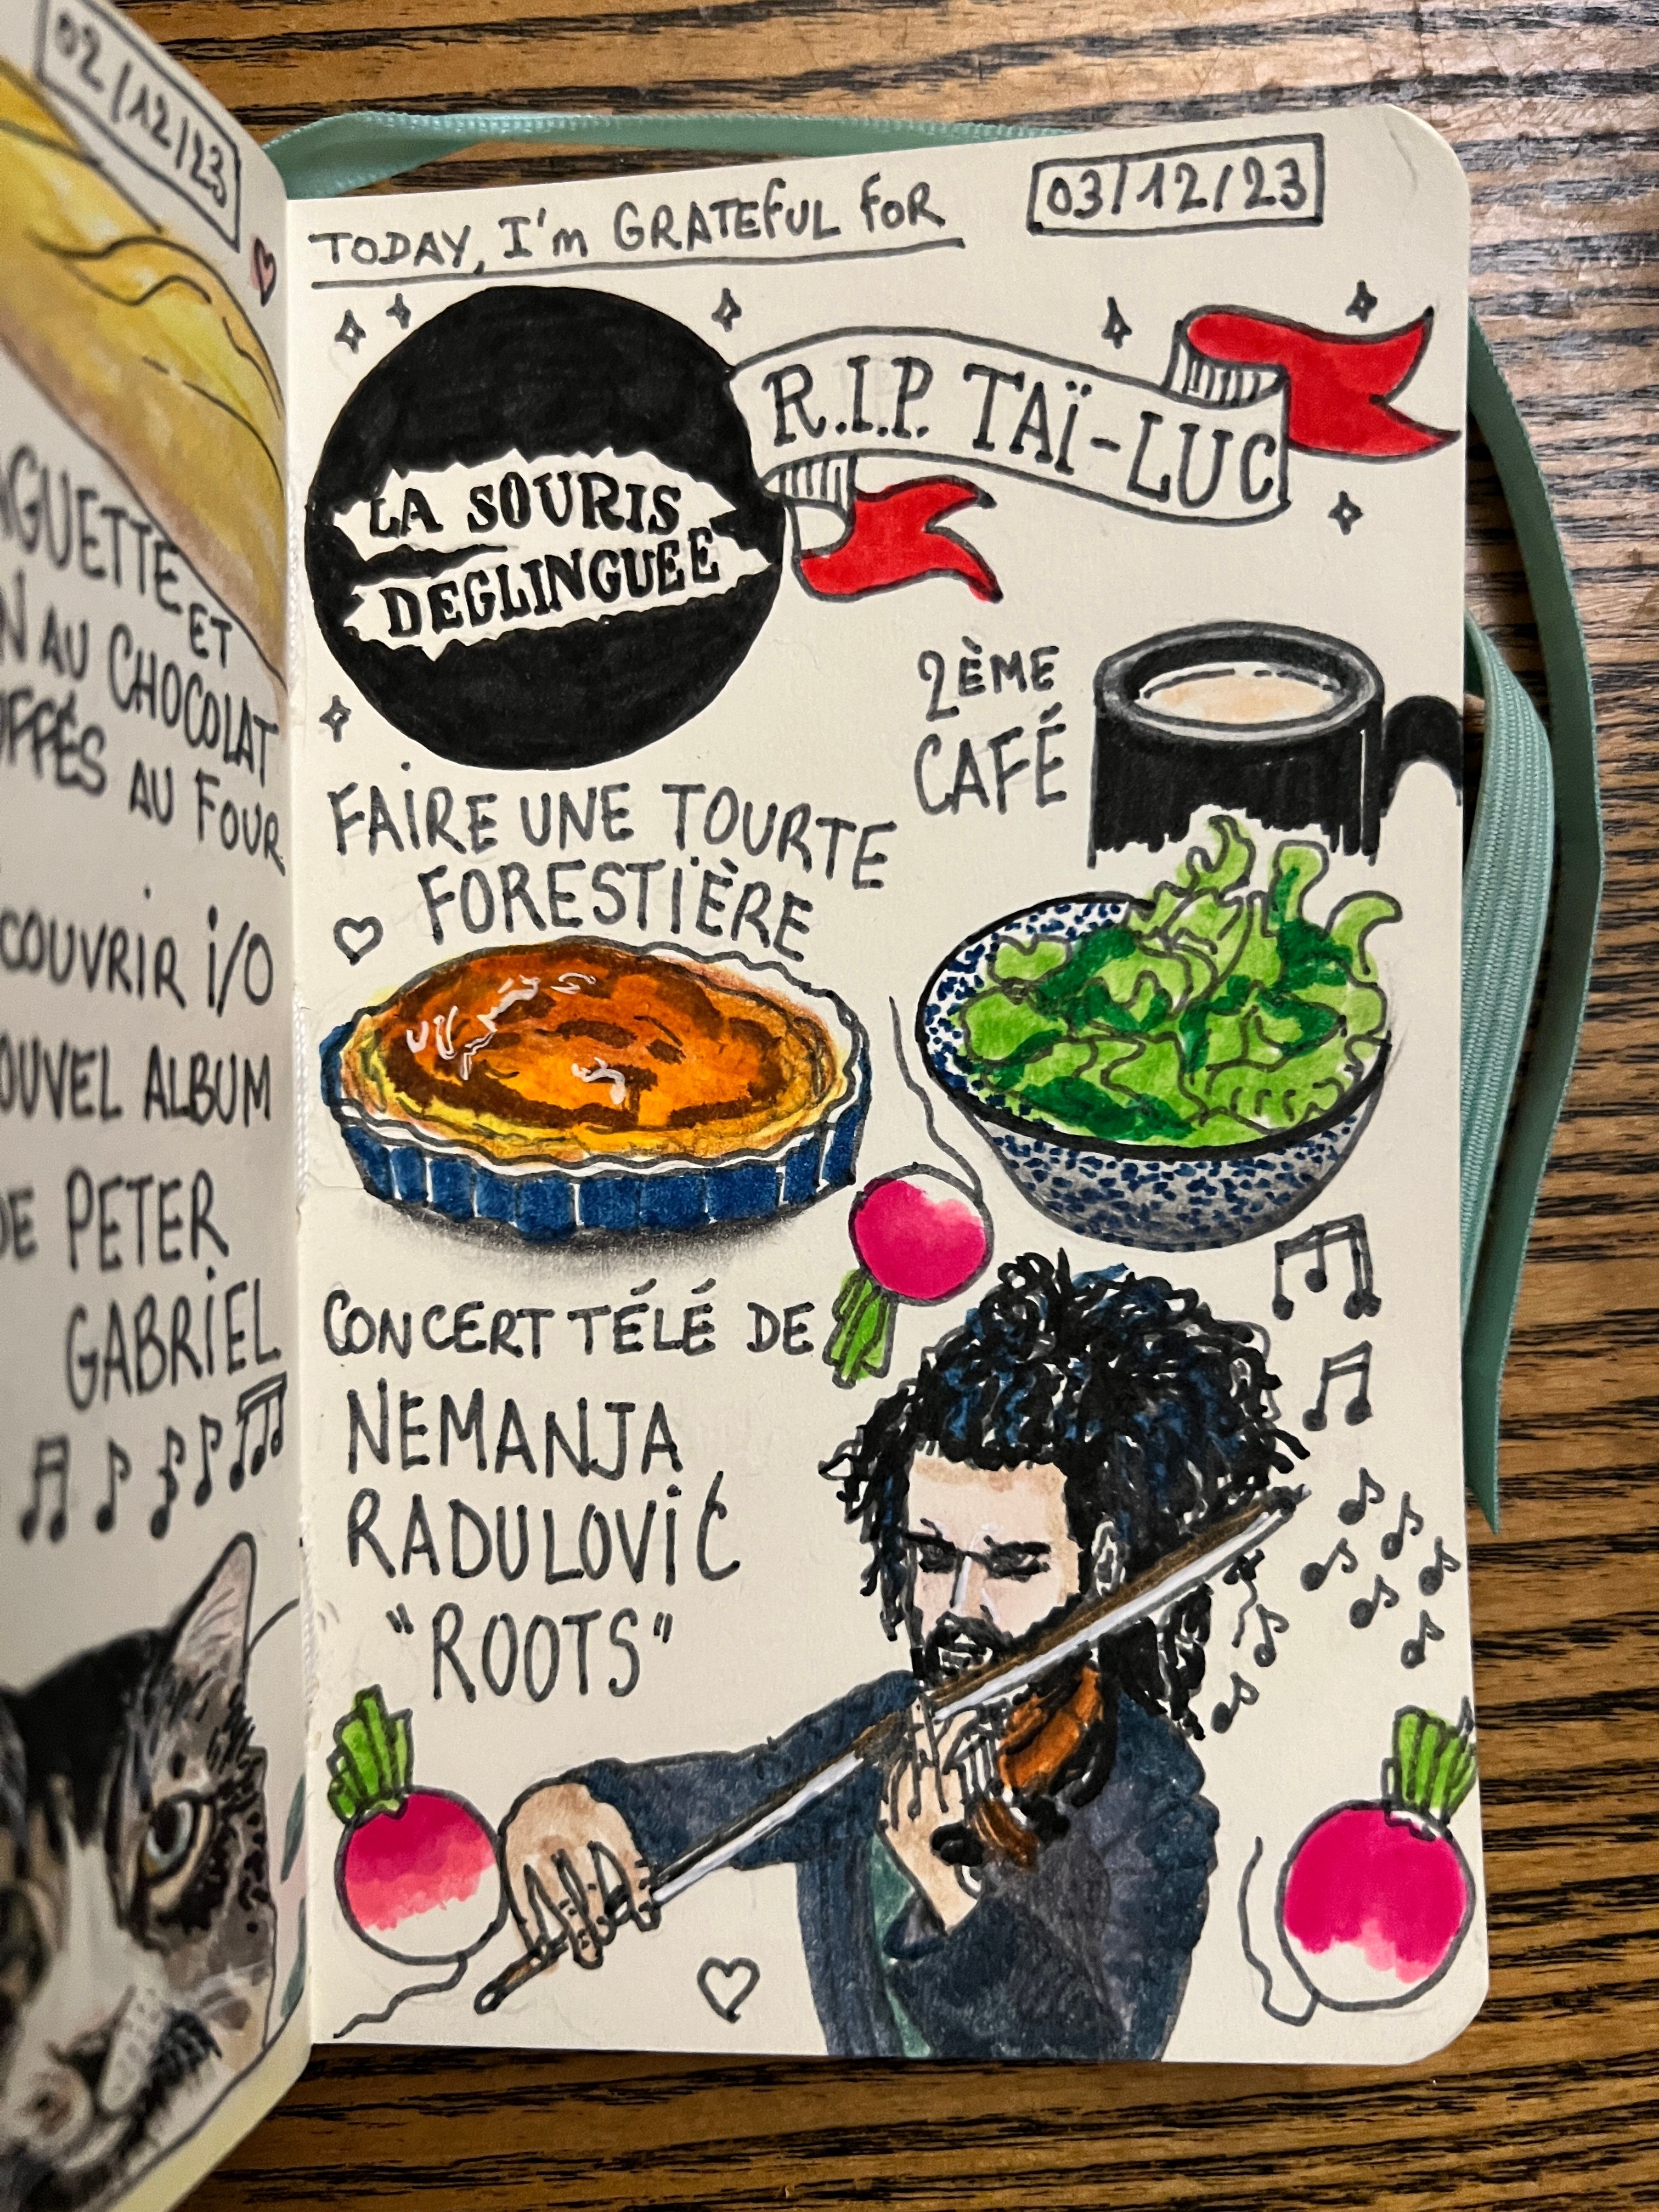 02/12/23
ET
AU CHOCOLAT
AU FOUR
i/O
ALBUM
DE PETER
GABRIEL
TODAY, I'm GRATEFUL FOR
03/12/23
R.I.P. TAÏ-LUC
LA SOURIS
DEGLINGUEE
2ÈME
CAFÉ
FAIRE UNE TOURTE
FORESTIÈRE
CONCERT TÉLÉ DE
NEMANJA
RADULOVIĆ
"ROOTS"